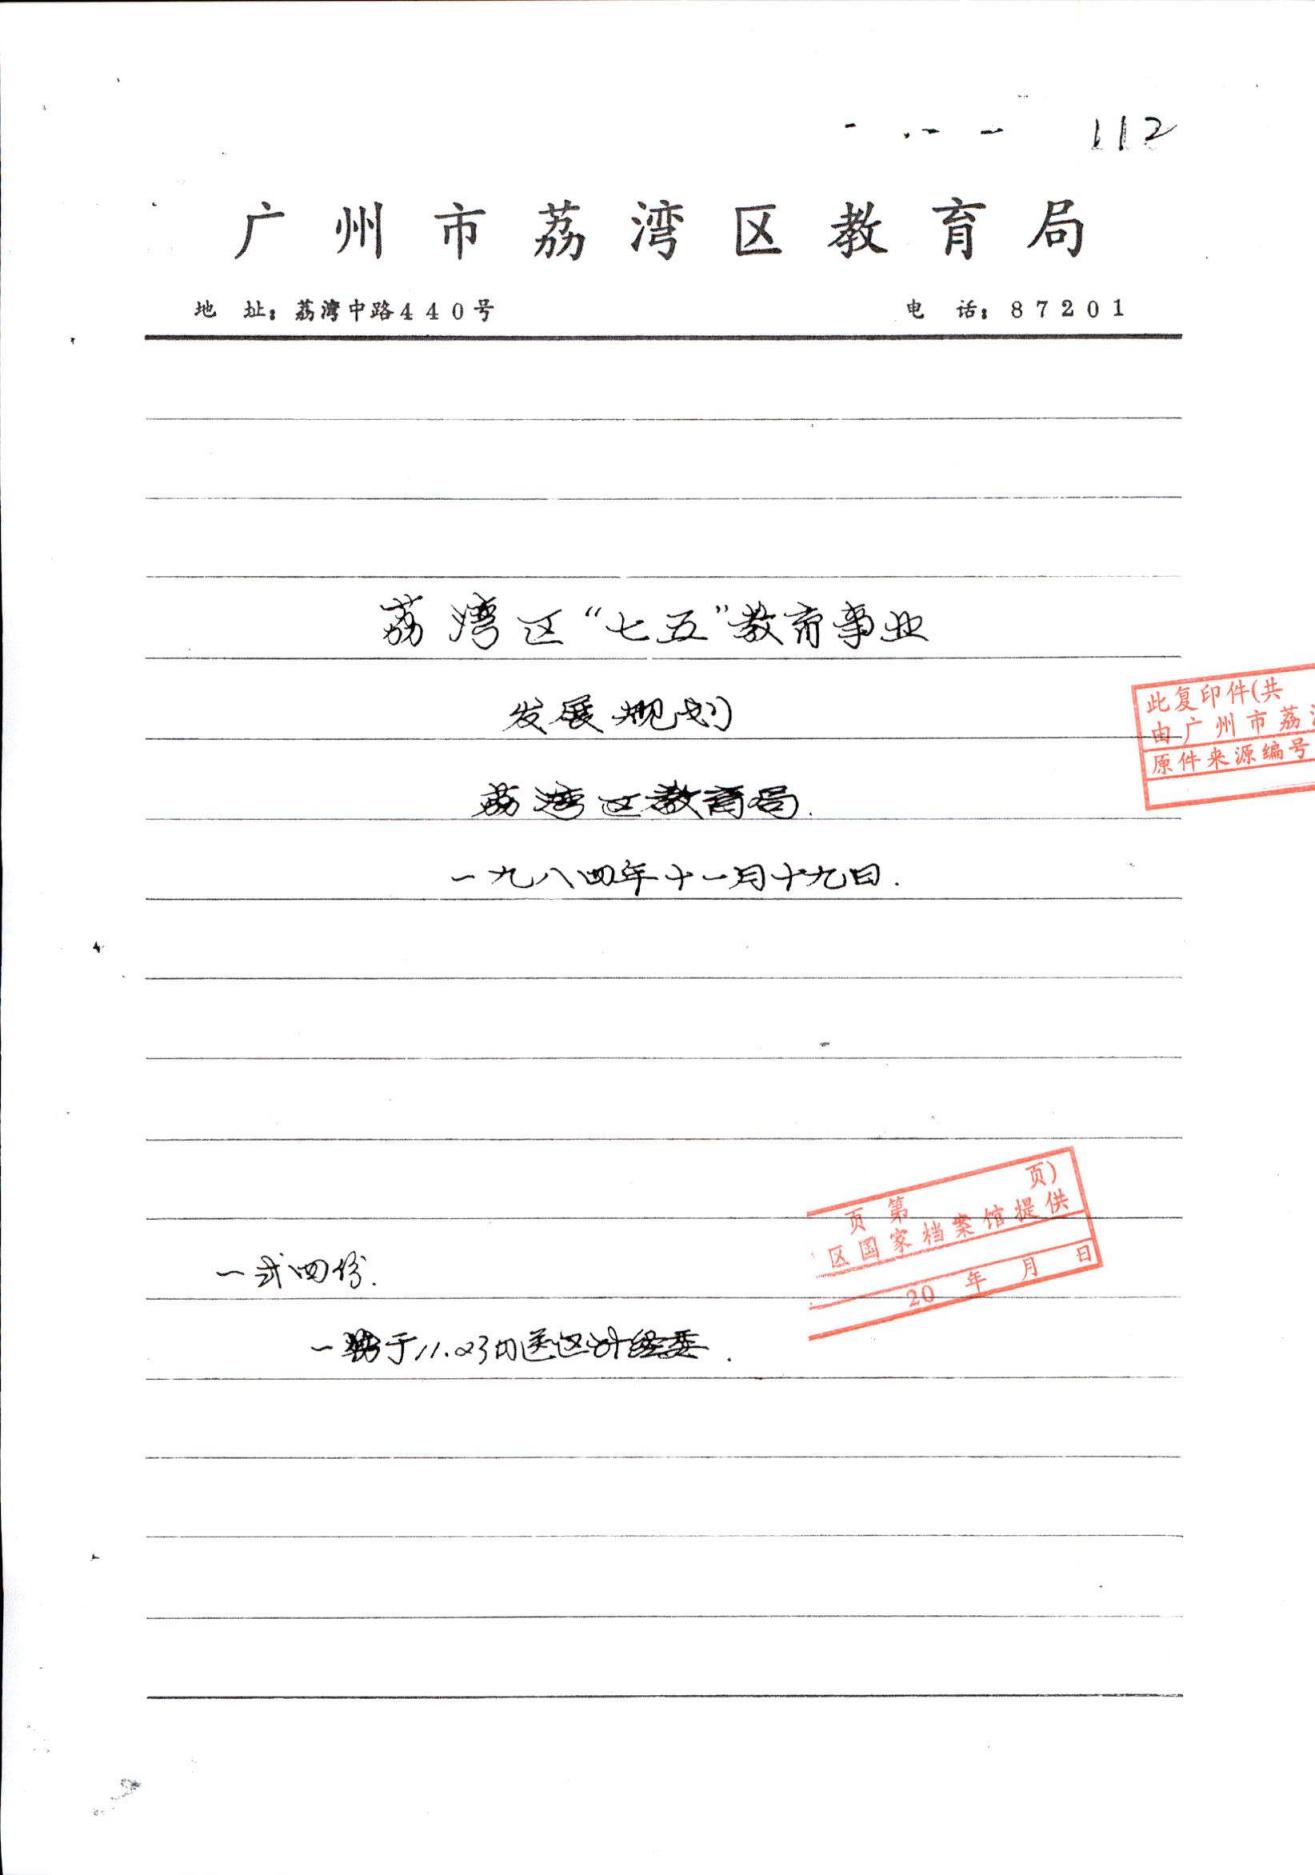 112
广州市荔湾区教育局
地 址：荔湾中路440号 电 话：87201
荔湾区“七五”教育事业
发展规划
此复印件(共
由广州市荔
原件来源编号
荔湾区教育局.
一九八四年十一月十九日.
页 第 页)
区国家档案馆提供
20 年 月 日
一式四份.
于11.23日送区计经委.